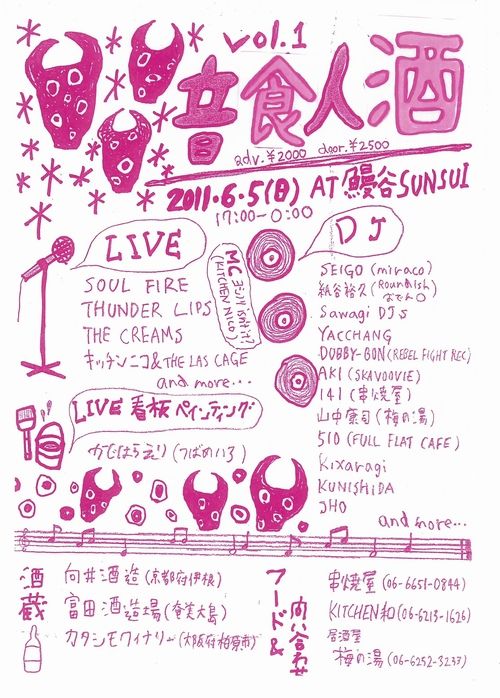 vol.1
音食人酒
adv.¥2000 door.¥2500
2011.6.5(日) AT 鰻谷SUNSUI
17:00-0:00
LIVE
SOUL FIRE
THUNDER LIPS
THE CREAMS
キッチンニコ&THE LAS CAGE
and more...
MC
(KITCHEN NICO)
DJ
SEIGO (miraco)
紙谷裕久 (Roundish なでん〇)
Sawagi DJs
YACCHANG
DOBBY-BON (REBEL FIGHT REC)
AKI (SKAVOOVIE)
141 (串焼屋)
山中 (梅の湯)
510 (FULL FLAT CAFE)
Kixaragi
KUNISHIDA
JHO
and more...
LIVE 看板ペインティング
かじはらえり (つばめいろ)
酒蔵
向井酒造 (京都府伊根)
富田酒造場 (奄美大島)
カタシモワイナリー (大阪府柏原市)
フード&
問い合わせ
串焼屋 (06-6651-0844)
KITCHEN和 (06-6213-1626)
居酒屋
梅の湯 (06-6252-3237)